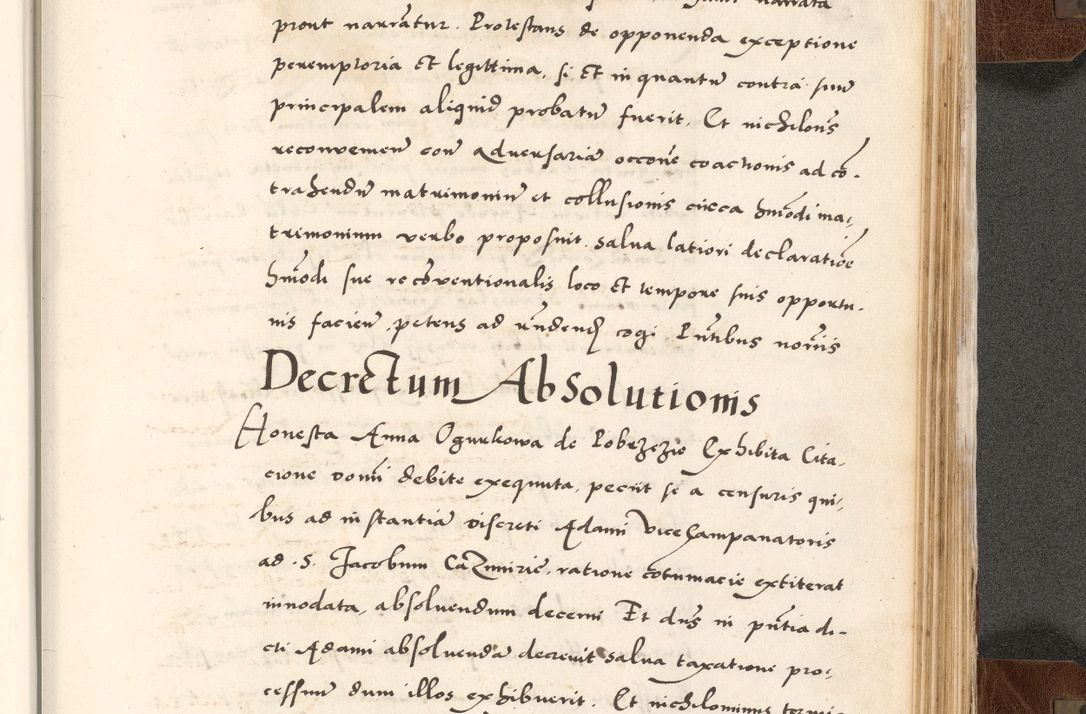 narrata
prout narrantur. Protestans de opponenda exceptione
peremptoria et legittima, si et in quantũ contra suũ
principalem aliquid probatũ fuerit. Et nichilons̃
reconvemen̄ con̄ adversariã occone coactionis ad cõ-
trahendũ matrimoniũ et collusionis circa hm̃odi ma,
trimonium verbo proposuit. salva latiori declaratioẽ
hm̃odi sue recõventionalis loco et tempore suis opportu-
nis facien̄. petens ad rñdend cogi Pn̄tibus nor̃iis
Decretum Absolutionis
Honesta Anna Ogurkowa de Pobrzezie Exhibita Cita-
cione domi debite exequuta, peciit se a censuris qui,
bus ad instantiã discreti Adami Vicecampanatoris
ad .S. Jacobum Cazimiriẽ, ratione cõtumacie extiterat
innodata, absolvendum decerni Et dns̃ in pñtia di-
cti Adami absolvendã decrevit salva taxatione pro,
cessuũ dum illos exhibuerit. Et nichilominus termi-